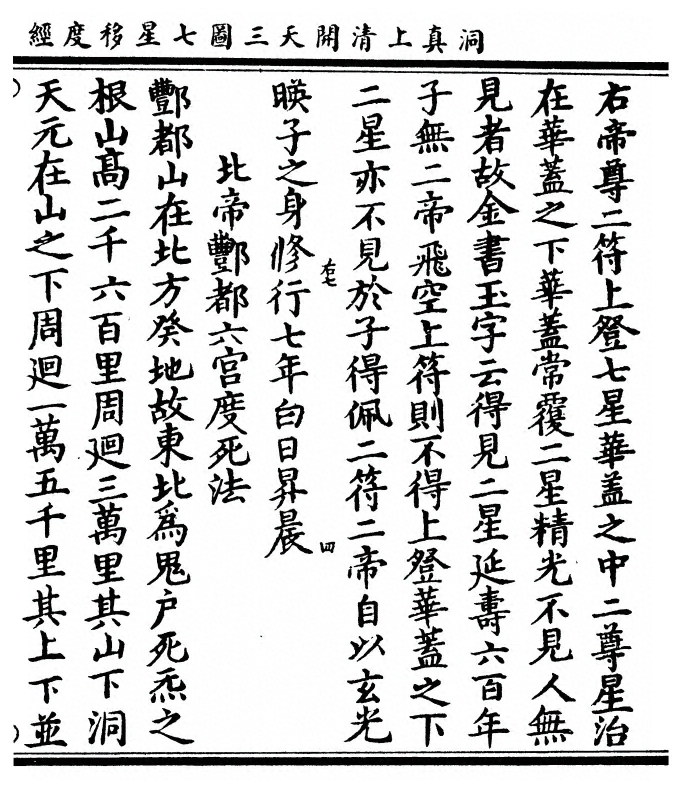 洞真上清開天三圖七星移度經
右帝尊二符上登七星華蓋之中二尊星治
在華蓋之下華蓋常覆二星精光不見人無
見者故金書玉字云得見二星延壽六百年
子無二帝飛空上符則不得上登華蓋之下
二星亦不見於子得佩二符二帝自以玄光
暎子之身修行七年白日昇晨
右七
四
北帝酆都六宮度死法
酆都山在北方癸地故東北爲鬼户死炁之
根山髙二千六百里周廻三萬里其山下洞
天元在山之下周廻一萬五千里其上下並